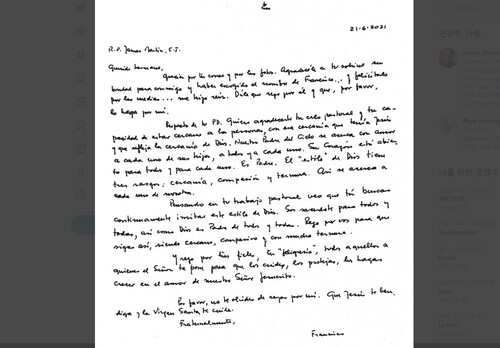 21-6-2021
R.P. James Martin, S.J.
Querido hermano,
Gracias por tu correo y por las fotos. Agradecele a tu sobrino su
bondad para conmigo y haber escogido el nombre de Francisco... y felicitalo
por las medias... me hizo reir. Dile que rezo por él y que, por favor,
lo haga por mí.
Respecto de tu PD. Quiero agradecerte tu celo pastoral y tu ca-
pacidad de estar cercano a las personas, con esa cercanía que tenía Jesús
y que refleja la cercanía de Dios. Nuestro Padre del Cielo se acerca con amor
a cada uno de sus hijos, a todos y a cada uno. Su Corazón está abier-
to para todos y para cada uno. Es Padre. El "estilo" de Dios tiene
tres rasgos: cercanía, compasión y ternura. Así se acerca a
cada uno de nosotros.
Pensando en tu trabajo pastoral veo que tú buscas
continuamente imitar este estilo de Dios. Sos sacerdote para todos y
todas, así como Dios es Padre de todos y todas. Rezo por vos para que
sigas así, siendo cercano, compasivo y con mucha ternura.
Y rezo por tus fieles, tus "feligreses", todos aquellos a
quienes el Señor te pone para que los cuides, los protejas, los hagas
crecer en el amor de nuestro Señor Jesucristo.
Por favor, no te olvides de rezar por mí. Que Jesús te ben-
diga y la Virgen Santa te cuide.
Fraternalmente,
Francisco